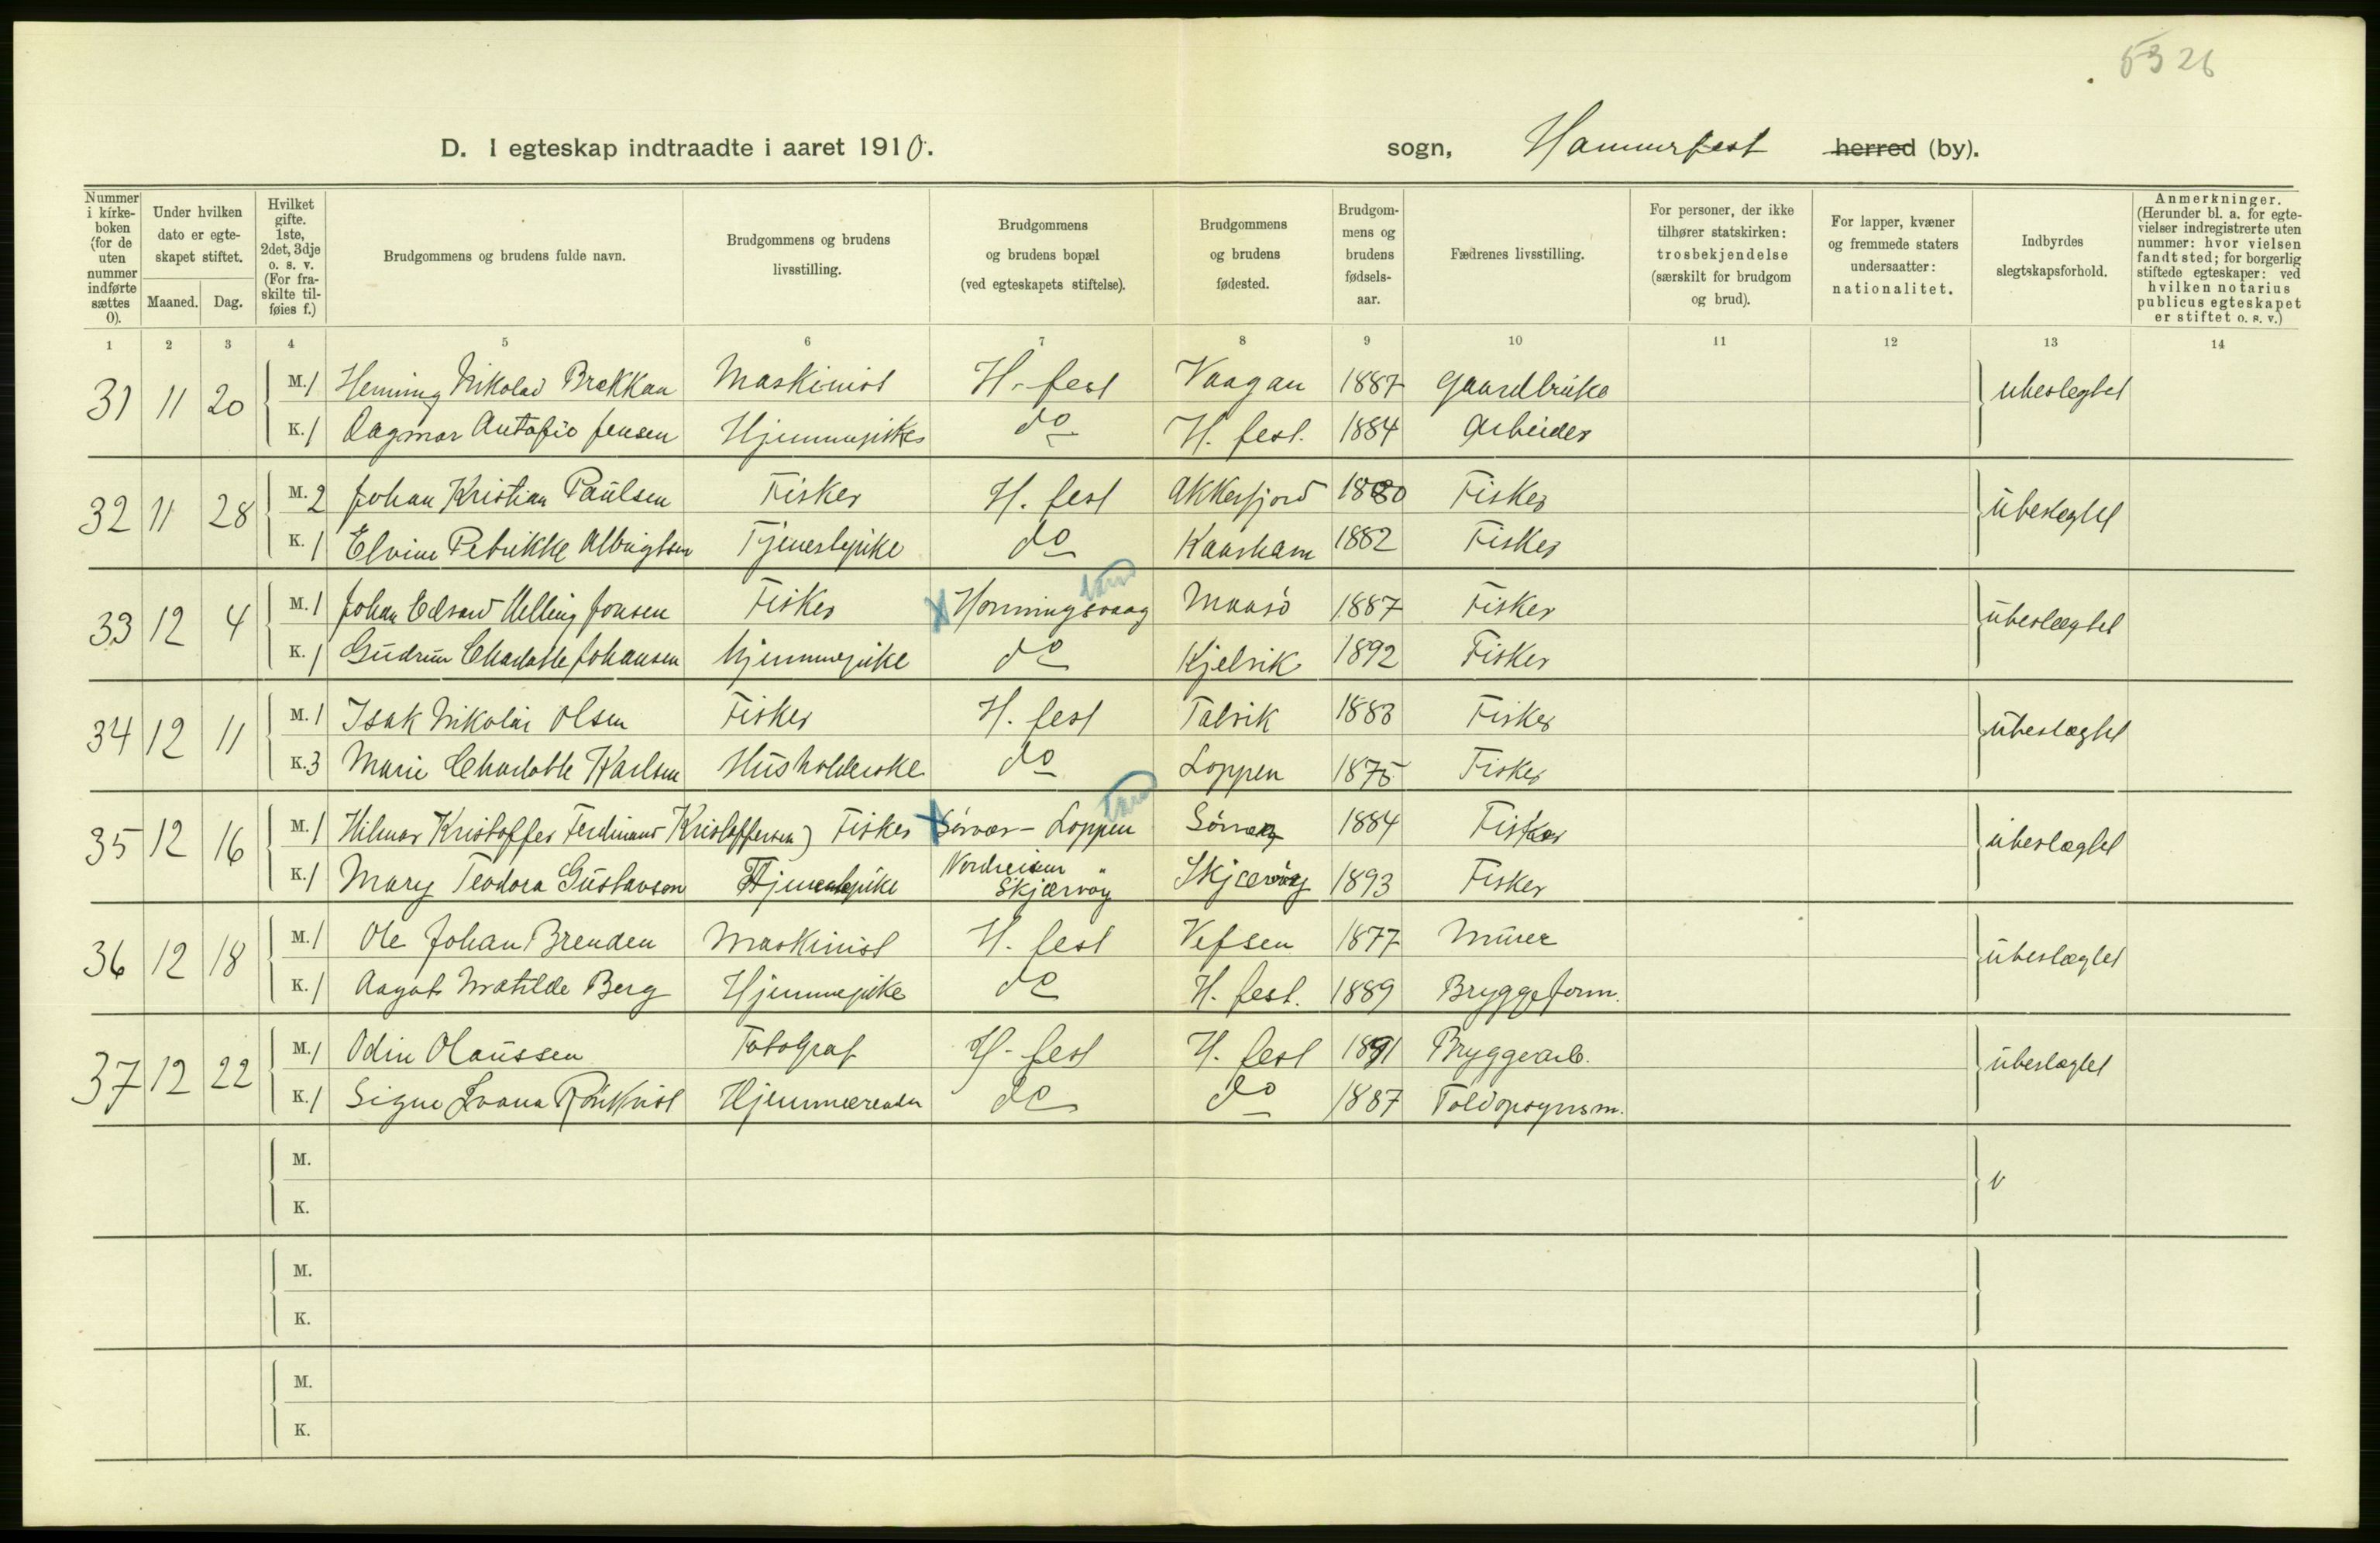 5326
D. I egteskap indtraadte i aaret 1910. sogn, Hammerfest herred (by).
Nummer i kirkeboken (for de uten nummer indførte sættes 0).
Under hvilken dato er egteskapet stiftet.
Maaned. Dag.
Hvilket gifte. 1ste, 2det, 3dje o. s. v. (For fraskilte tilføies f.)
Brudgommens og brudens fulde navn.
Brudgommens og brudens livsstilling.
Brudgommens og brudens bopæl (ved egteskapets stiftelse).
Brudgommens og brudens fødested.
Brudgommens og brudens fødselsaar.
Fædrenes livsstilling.
For personer, der ikke tilhører statskirken: trosbekjendelse (særskilt for brudgom og brud).
For lapper, kvæner og fremmede staters undersaatter: nationalitet.
Indbyrdes slegtskapsforhold.
Anmerkninger. (Herunder bl. a. for egtevielser indregistrerte uten nummer: hvor vielsen fandt sted; for borgerlig stiftede egteskaper: ved hvilken notarius publicus egteskapet er stiftet o. s. v.)
1 2 3 4 5 6 7 8 9 10 11 12 13 14
31 11 20 M. 1 Henning Nikolai Brekkan Maskinist H. fest Vaagan 1887 Gaardbruker ubeslegtet
K. 1 Dagmar Jensen Hjemmepike do H. fest. 1884 Arbeider
32 11 28 M. 2 Johan Kristian Paulsen Fisker H. fest Akkerfjord 1880 Fisker ubeslegtet
K. 1 Elvine Petrikke Albrigtsen Tjenestepike do Kaarham 1882 Fisker
33 12 4 M. 1 Johan Edvard Jonsen Fisker Honningsvaag Maasö 1887 Fisker ubeslægtet
K. 1 Gudrun Charlotte Johansen hjemmepike do Kjelvik 1892 Fisker
34 12 11 M. 1 Isak Nikolai Olsen Fisker H. fest Talvik 1883 Fisker ubeslægtet
K. 3 Marie Charlotte Karlsen Husholderske do Loppen 1875 Fisker
35 12 16 M. 1 Hilmar Kristoffer Ferdinand Kristoffersen) Fisker Sörvær - Loppen Sörvær 1884 Fisker ubeslægtet
K. 1 Mary Teodora Gustavson Tjenestepike Nordreisen " Skjærvöy Skjærvöy 1893 Fisker
36 12 18 M. 1 Ole Johan Brenden Maskinist H. fest Vefsen 1877 Murer ubeslægtet
K. 1 Aagot Matilde Berg Hjemmepike do H. fest. 1889 Bryggeform.
37 12 22 M. 1 Odin Olaussen Fotograf H. fest H. fest 1891 Bryggearb. ubeslagtet
K. 1 Signe Ivana Rönkvist Hjemmeværende do do 1887 Toldopsynsm.
M.
K.
M.
K.
M.
K.